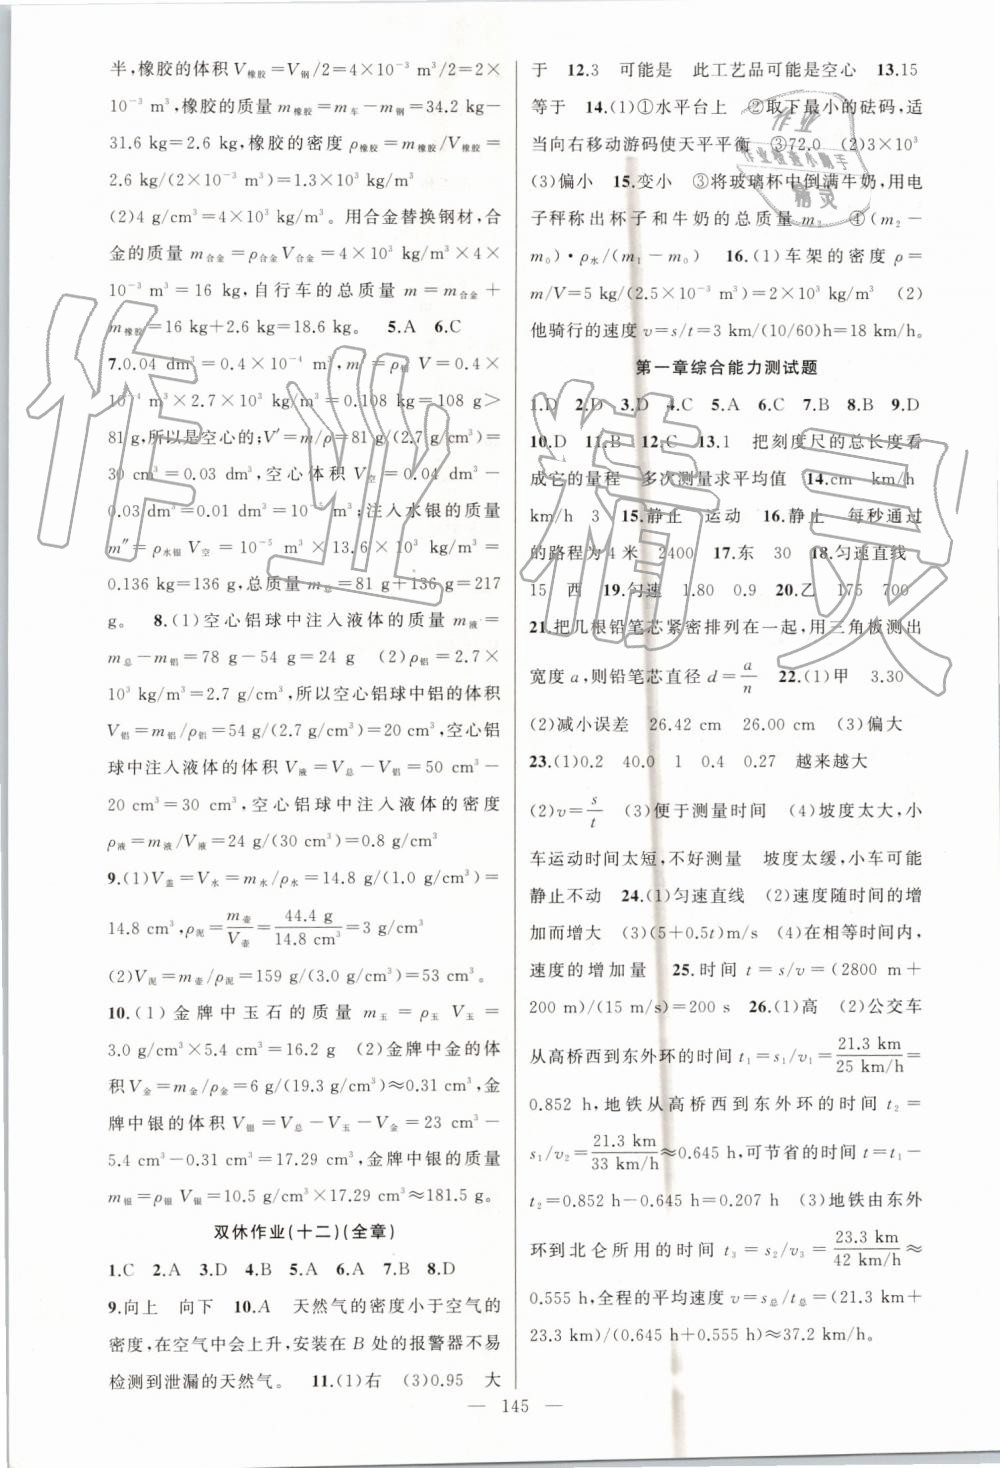 半,橡胶的体积V橡胶=V钢/2=4×10⁻³ m³/2=2×
10⁻³ m³,橡胶的质量m橡胶=m车-m钢=34.2 kg-
31.6 kg=2.6 kg,橡胶的密度ρ橡胶=m橡胶/V橡胶=
2.6 kg/(2×10⁻³ m³)=1.3×10³ kg/m³
(2)4 g/cm³=4×10³ kg/m³。用合金替换钢材,合
金的质量m合金=ρ合金V合金=4×10³ kg/m³×4×
10⁻³ m³=16 kg,自行车的总质量m=m合金+
m橡胶=16 kg+2.6 kg=18.6 kg。 5.A 6.C
7.0.04 dm³=0.4×10⁻⁴ m³,m=ρ铝V=0.4×
10⁻⁴ m³×2.7×10³ kg/m³=0.108 kg=108 g>
81 g,所以是空心的;V′=m/ρ=81 g/(2.7 g/cm³)=
30 cm³=0.03 dm³,空心体积V空=0.04 dm³-
0.03 dm³=0.01 dm³=10⁻⁵ m³;注入水银的质量
m″=ρ水银V空=10⁻⁵ m³×13.6×10³ kg/m³=
0.136 kg=136 g,总质量m总=81 g+136 g=217
g。 8.(1)空心铝球中注入液体的质量m液=
m总-m铝=78 g-54 g=24 g (2)ρ铝=2.7×
10³ kg/m³=2.7 g/cm³,所以空心铝球中铝的体积
V铝=m铝/ρ铝=54 g/(2.7 g/cm³)=20 cm³,空心铝
球中注入液体的体积V液=V总-V铝=50 cm³-
20 cm³=30 cm³,空心铝球中注入液体的密度
ρ液=m液/V液=24 g/(30 cm³)=0.8 g/cm³
9.(1)V盖=V水=m水/ρ水=14.8 g/(1.0 g/cm³)=
14.8 cm³,ρ泥=m壶/V壶=44.4 g/14.8 cm³=3 g/cm³
(2)V泥=m壶/ρ泥=159 g/(3.0 g/cm³)=53 cm³。
10.(1)金牌中玉石的质量m玉=ρ玉V玉=
3.0 g/cm³×5.4 cm³=16.2 g (2)金牌中金的体
积V金=m金/ρ金=6 g/(19.3 g/cm³)≈0.31 cm³,金
牌中银的体积V银=V总-V玉-V金=23 cm³-
5.4 cm³-0.31 cm³=17.29 cm³,金牌中银的质量
m银=ρ银V银=10.5 g/cm³×17.29 cm³≈181.5 g。
双休作业(十二)(全章)
1.C 2.A 3.D 4.B 5.A 6.A 7.B 8.D
9.向上 向下 10.A 天然气的密度小于空气的
密度,在空气中会上升,安装在B处的报警器不易
检测到泄漏的天然气。 11.(1)右 (3)0.95 大
于 12.3 可能是 此工艺品可能是空心 13.15
等于 14.(1)①水平台上 ②取下最小的砝码,适
当向右移动游码使天平平衡 ③72.0 (2)3×10³
(3)偏小 15.变小 ③将玻璃杯中倒满牛奶,用电
子秤称出杯子和牛奶的总质量m₂ ④(m₂-
m₀)·ρ水/(m₁-m₀) 16.(1)车架的密度ρ=
m/V=5 kg/(2.5×10⁻³ m³)=2×10³ kg/m³ (2)
他骑行的速度v=s/t=3 km/(10/60)h=18 km/h。
第一章综合能力测试题
1.D 2.D 3.D 4.C 5.A 6.C 7.B 8.B 9.D
10.D 11.B 12.C 13.1 把刻度尺的总长度看
成它的量程 多次测量求平均值 14.cm km/h
km/h 3 15.静止 运动 16.静止 每秒通过
的路程为4米 2400 17.东 30 18.匀速直线
15 西 19.匀速 1.80 0.9 20.乙 175 700
21.把几根铅笔芯紧密排列在一起,用三角板测出
宽度a,则铅笔芯直径d=a/n 22.(1)甲 3.30
(2)减小误差 26.42 cm 26.00 cm (3)偏大
23.(1)0.2 40.0 1 0.4 0.27 越来越大
(2)v=s/t (3)便于测量时间 (4)坡度太大,小
车运动时间太短,不好测量 坡度太缓,小车可能
静止不动 24.(1)匀速直线 (2)速度随时间的增
加而增大 (3)(5+0.5t)m/s (4)在相等时间内,
速度的增加量 25.时间t=s/v=(2800 m+
200 m)/(15 m/s)=200 s 26.(1)高 (2)公交车
从高桥西到东外环的时间t₁=s₁/v₁=21.3 km/25 km/h=
0.852 h,地铁从高桥西到东外环的时间t₂=
s₁/v₂=21.3 km/33 km/h≈0.645 h,可节省的时间t=t₁-
t₂=0.852 h-0.645 h=0.207 h (3)地铁由东外
环到北仑所用的时间t₃=s₂/v₃=23.3 km/42 km/h≈
0.555 h,全程的平均速度v=s总/t总=(21.3 km+
23.3 km)/(0.645 h+0.555 h)≈37.2 km/h。
— 145 —
作业精灵
作业
作业检查小助手
精灵